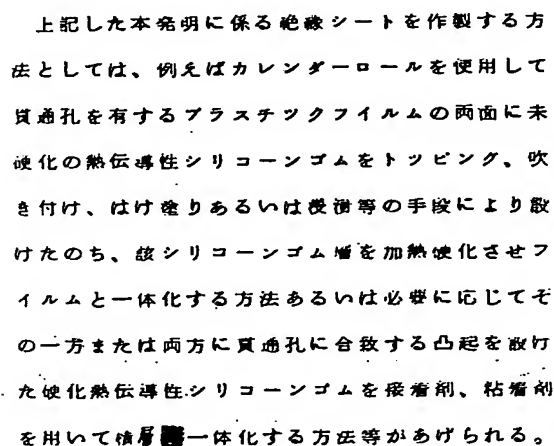 上記した本発明に係る絶縁シートを作製する方
法としては、例えばカレンダーロールを使用して
貫通孔を有するプラスチックフイルムの両面に未
硬化の熱伝導性シリコーンゴムをトッピング、吹
き付け、はけ塗りあるいは浸漬等の手段により設
けたのち、該シリコーンゴム層を加熱硬化させフ
イルムと一体化する方法あるいは必要に応じてそ
の一方または両方に貫通孔に合致する凸起を設け
た硬化熱伝導性シリコーンゴムを接着剤、粘着剤
を用いて積層一体化する方法等があげられる。